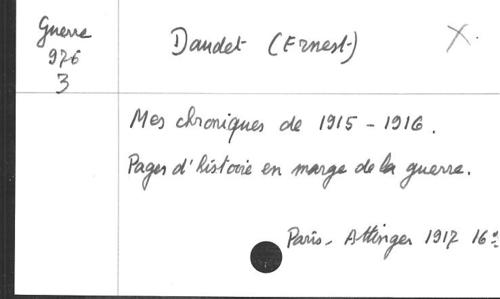 Guerre
976
3
Daudet (Ernest)
X.
Mes chroniques de 1915 - 1916.
Pages d'histoire en marge de la guerre.
Paris - Attinger 1917 16º